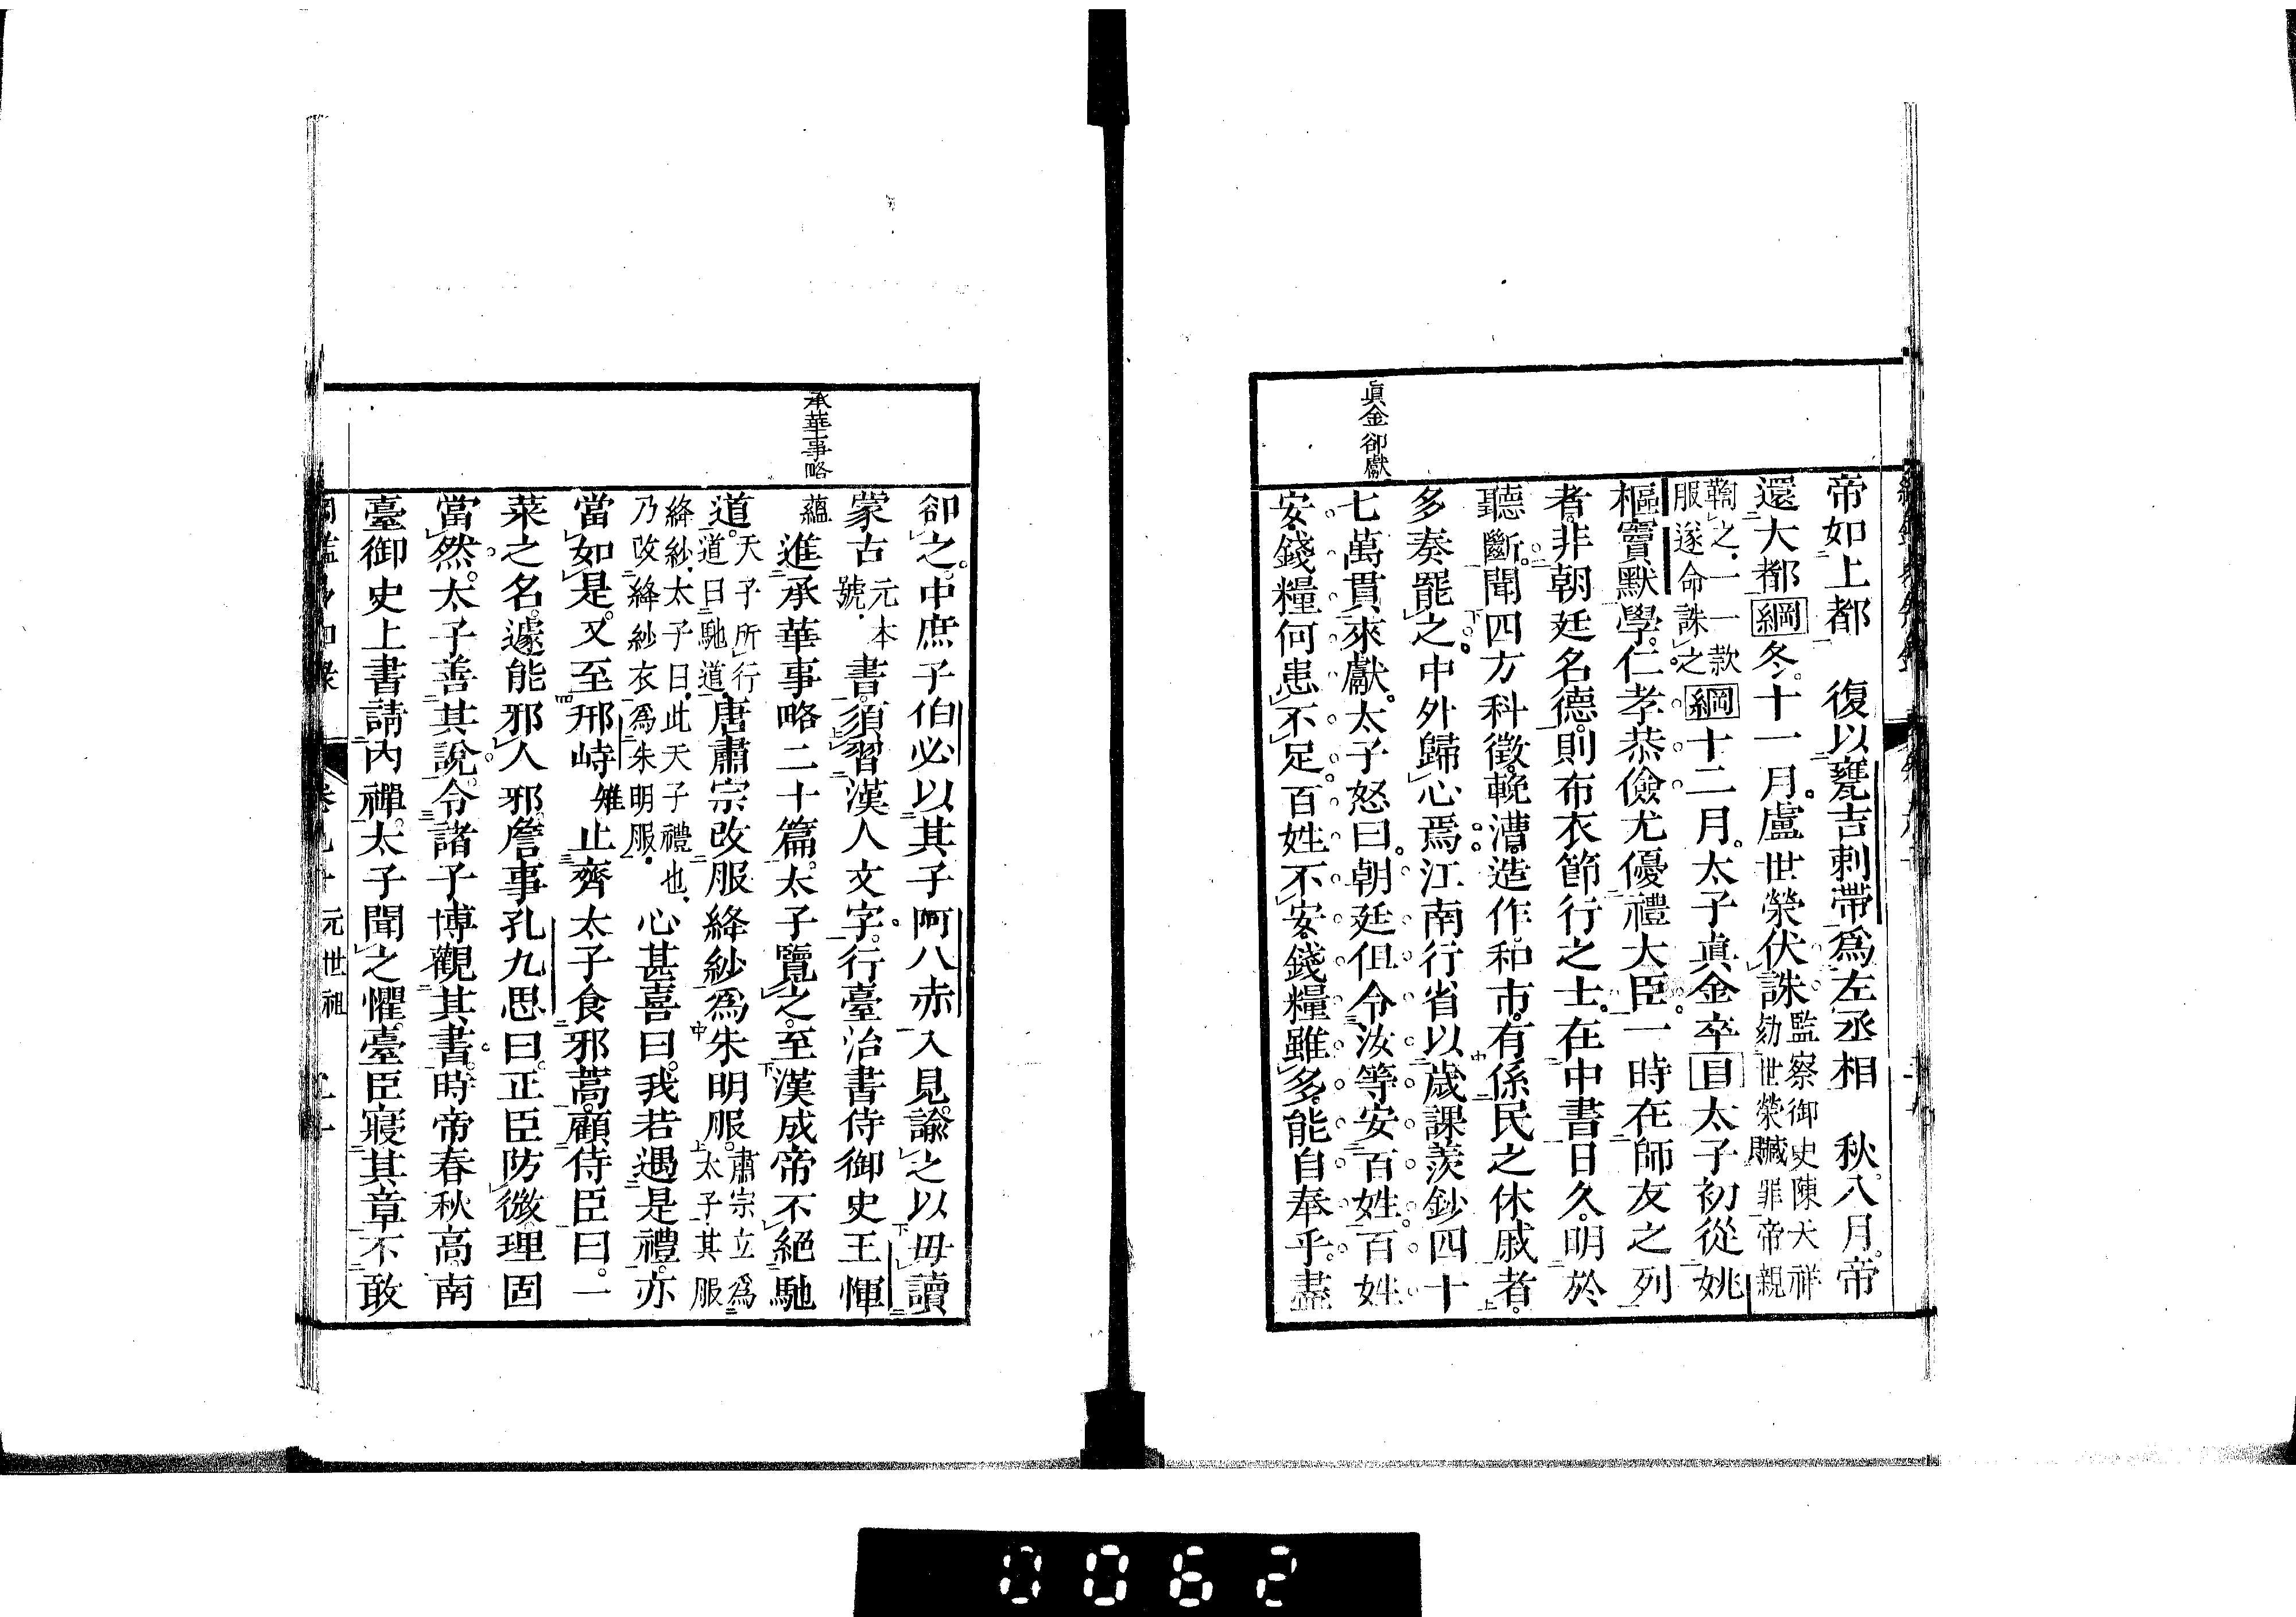 帝如上都　復以甕吉剌帶爲左丞相　秋八月帝
還大都綱冬十一月盧世榮伏誅監察御史陳天祥劾世榮贓罪帝親
鞫之一一款服遂命誅之綱十二月太子眞金卒目太子初從姚
樞竇默學仁孝恭儉尤優禮大臣一時在師友之列
者非朝廷名德則布衣節行之士在中書日久明於
聽斷聞四方科徵輓漕造作和市有係民之休戚者
多奏罷之中外歸心焉江南行省以歲課羨鈔四十
眞金卻獻
七萬貫來獻太子怒曰朝廷但令汝等安百姓百姓
安錢糧何患不足百姓不安錢糧雖多能自奉乎盡
卻之中庶子伯必以其子阿八赤入見諭之以毋讀
蒙古元本號書須習漢人文字行臺治書侍御史王惲
承華事略
蘊進承華事略二十篇太子覽之至漢成帝不絕馳
道天子所行道曰馳道唐肅宗改服絳紗爲朱明服肅宗立爲太子其服
絳紗太子曰此天子禮也乃改絳紗衣爲朱明服心甚喜曰我若遇是禮亦
當如是又至邢峙雉止齊太子食邪蒿顧侍臣曰一
菜之名遽能邪人邪詹事孔九思曰正臣防微理固
當然太子善其說令諸子博觀其書時帝春秋高南
臺御史上書請內禪太子聞之懼臺臣寢其章不敢
元世祖
0062